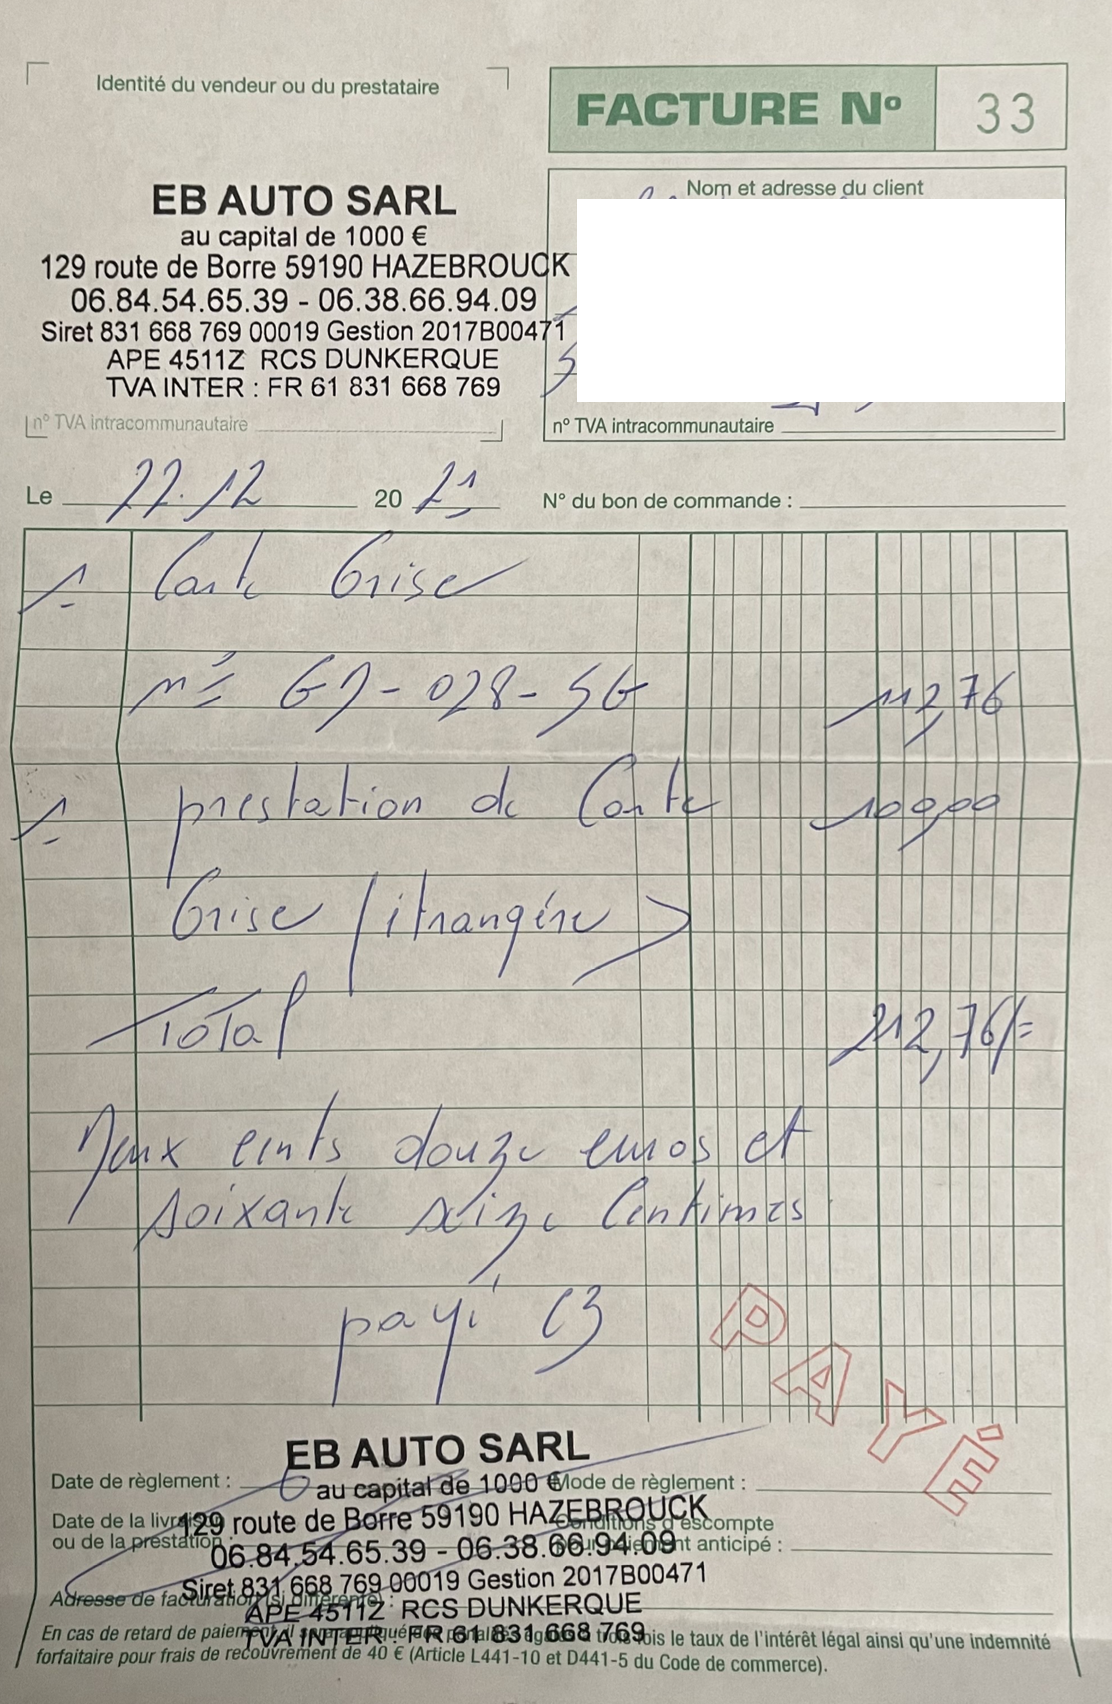 Identité du vendeur ou du prestataire
FACTURE Nº 33
EB AUTO SARL
au capital de 1000 €
129 route de Borre 59190 HAZEBROUCK
06.84.54.65.39 - 06.38.66.94.09
Siret 831 668 769 00019 Gestion 2017B00471
APE 4511Z RCS DUNKERQUE
TVA INTER : FR 61 831 668 769
n° TVA intracommunautaire
Nom et adresse du client
n° TVA intracommunautaire
Le 22.12 20 21
N° du bon de commande :
1- Carte Grise
n°= GD-028-SG 112,76
1- prestation de Carte 100,00
Grise (étrangère)
Total 212,76/=
Deux cents douze euros et
soixante seize Centimes
payé CB
PAYÉ
EB AUTO SARL
Date de règlement :
au capital de 1000 €
Mode de règlement :
129 route de Borre 59190 HAZEBROUCK
Date de la livraison
ou de la prestation :
Conditions d'escompte
pour paiement anticipé :
06.84.54.65.39 - 06.38.66.94.09
Siret 831 668 769 00019 Gestion 2017B00471
Adresse de facturation (si différente) :
APE 4511Z RCS DUNKERQUE
TVA INTER : FR 61 831 668 769
En cas de retard de paiement, il sera appliqué des pénalités égales à trois fois le taux de l'intérêt légal ainsi qu'une indemnité
forfaitaire pour frais de recouvrement de 40 € (Article L441-10 et D441-5 du Code de commerce).